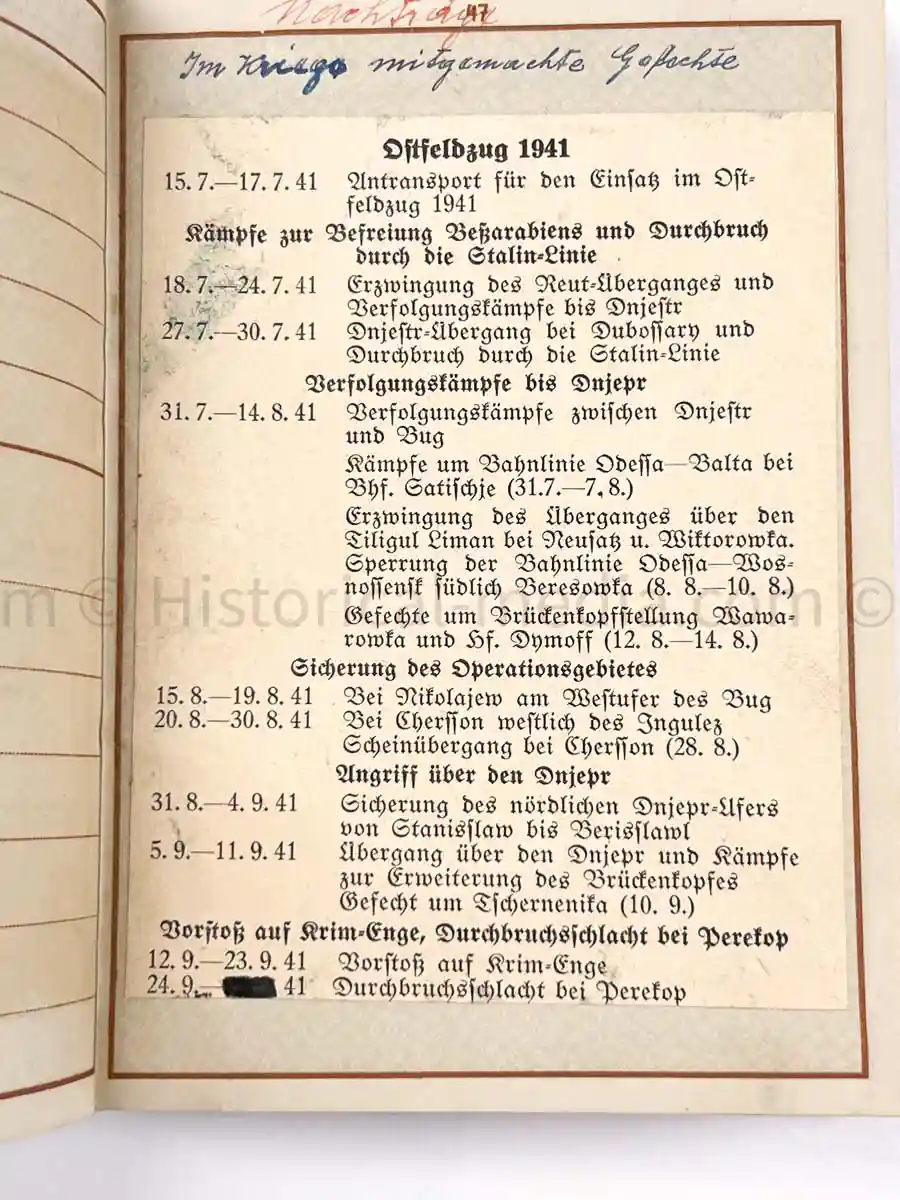 Nachträge
47
Im Kriege mitgemachte Gefechte
Ostfeldzug 1941
15. 7.—17. 7. 41 Antransport für den Einsatz im Ost-
feldzug 1941
Kämpfe zur Befreiung Beßarabiens und Durchbruch
durch die Stalin-Linie
18. 7.—24. 7. 41 Erzwingung des Reut-Überganges und
Verfolgungskämpfe bis Dnjestr
27. 7.—30. 7. 41 Dnjestr-Übergang bei Dubossary und
Durchbruch durch die Stalin-Linie
Verfolgungskämpfe bis Dnjepr
31. 7.—14. 8. 41 Verfolgungskämpfe zwischen Dnjestr
und Bug
Kämpfe um Bahnlinie Odessa—Balta bei
Bhf. Satischje (31.7.—7.8.)
Erzwingung des Überganges über den
Tiligul Liman bei Neusatz u. Wiktorowka.
Sperrung der Bahnlinie Odessa—Wos-
nossensk südlich Beresowka (8. 8.—10. 8.)
Gefechte um Brückenkopfstellung Wawa-
rowka und Hf. Dymoff (12. 8.—14. 8.)
Sicherung des Operationsgebietes
15. 8.—19. 8. 41 Bei Nikolajew am Westufer des Bug
20. 8.—30. 8. 41 Bei Chersson westlich des Ingulez
Scheinübergang bei Chersson (28. 8.)
Angriff über den Dnjepr
31. 8.—4. 9. 41 Sicherung des nördlichen Dnjepr-Ufers
von Stanisslaw bis Berisslawl
5. 9.—11. 9. 41 Übergang über den Dnjepr und Kämpfe
zur Erweiterung des Brückenkopfes
Gefecht um Tschernenika (10. 9.)
Vorstoß auf Krim-Enge, Durchbruchsschlacht bei Perekop
12. 9.—23. 9. 41 Vorstoß auf Krim-Enge
24. 9.— 41 Durchbruchsschlacht bei Perekop